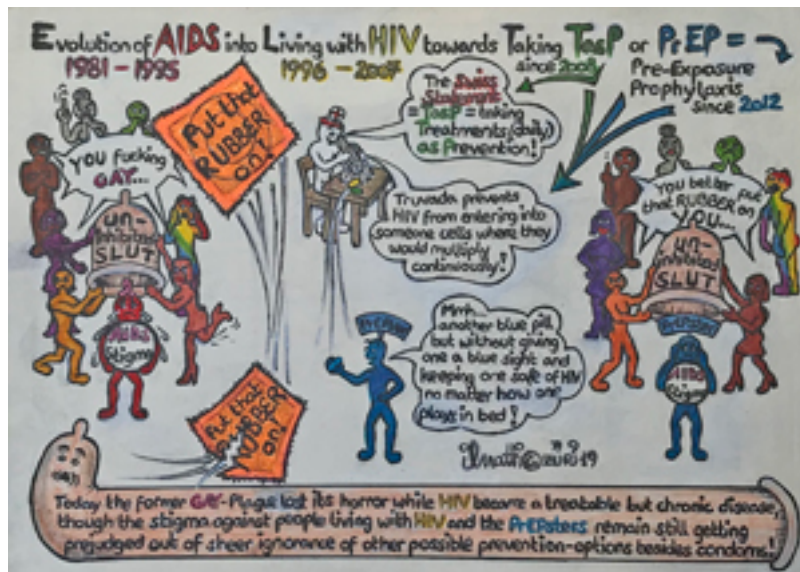 Evolution of AIDS into Living with HIV towards Taking TasP or PrEP =
1981 - 1995
1996 - 2007
since 2008
Pre-Exposure
Prophylaxis
since 2012
Put that
RUBBER
on!
The Swiss
Statement
= TasP = taking
Treatments (daily)
as Prevention!
YOU fucking
GAY...
un-
inhibited
SLUT
AIDS
Stigma
Truvada prevents
HIV from entering into
someone cells where they
would multiply
continuously!
You better put
that RUBBER on
YOU...
un-
inhibited
SLUT
PrEPster
AIDS
Stigma
PrEPster
Mmh...
another blue pill
but without giving
one a blue sight and
keeping one safe of HIV
no matter how one
plays in bed!
Put that
RUBBER
on!
Today the former GAY-Plague lost its horror while HIV became a treatable but chronic disease,
though the stigma against people living with HIV and the PrEPsters remain still getting
prejudged out of sheer ignorance of other possible prevention-options besides condoms!